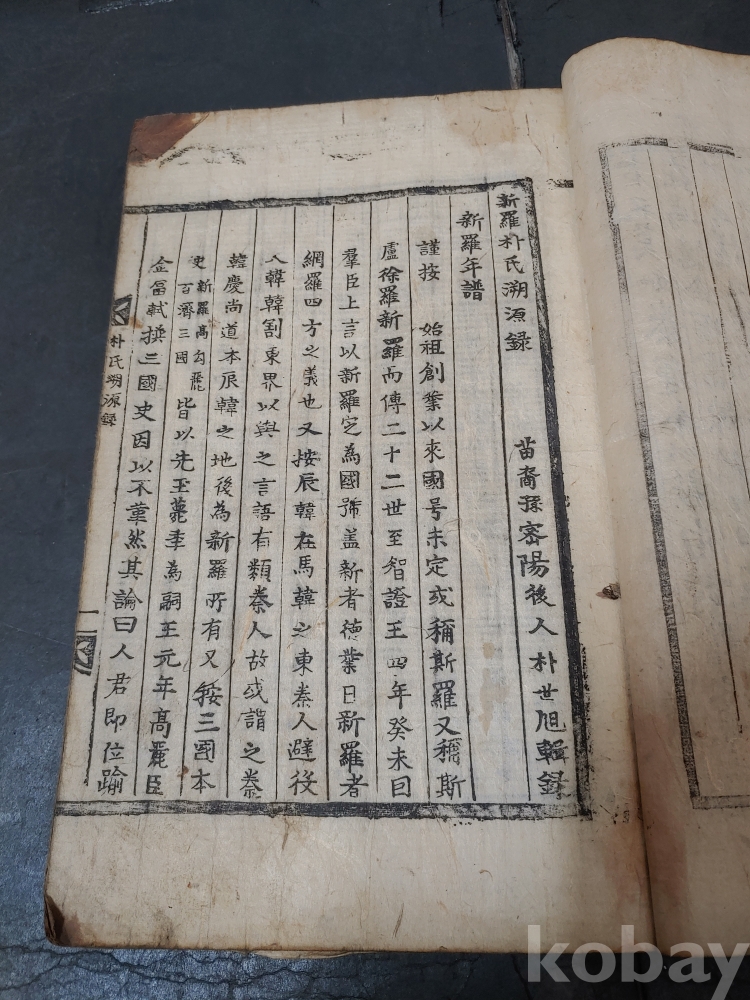 新羅朴氏溯源錄
苗裔孫密陽後人朴世旭輯録
新羅年譜
謹按 始祖創業以來國号未定或稱斯羅又稱斯
盧徐羅新羅而傳二十二世至智證王四年癸未曰
羣臣上言以新羅定為國號盖新者德業日新羅者
網羅四方之義也又按辰韓在馬韓之東秦人避役
入韓韓割東界以與之言語有類秦人故或謂之秦
韓慶尚道本辰韓之地後為新羅所有又按三國本
史新羅高勾麗百濟三國皆以先王薨年為嗣王元年高麗臣
金富軾撰三國史因以不革然其論曰人君即位踰
朴氏溯源錄
一
kobay